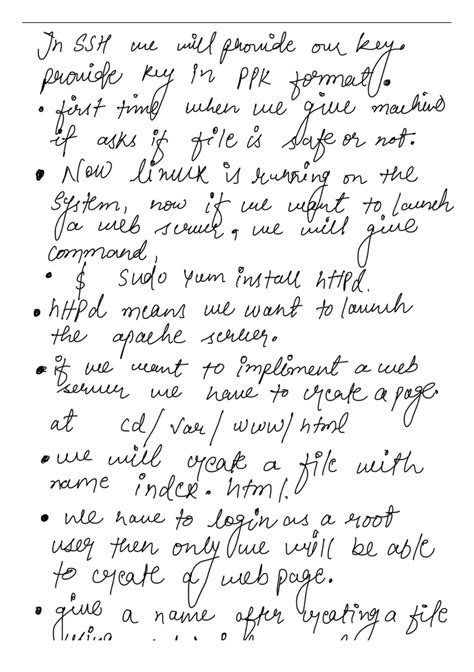 In SSH we will provide our key.
provide key in PPK format.
• first time when we give machine
it asks if file is safe or not.
• Now linux is running on the
System, now if we want to launch
a web server, we will give
command,
• $ Sudo Yum install httpd.
• httpd means we want to launch
the apache server.
• if we want to impliment a web
server we have to create a page
at cd/var/www/html
• we will create a file with
name index.html.
• we have to login as a root
user then only we will be able
to create a web page.
• give a name after creating a file